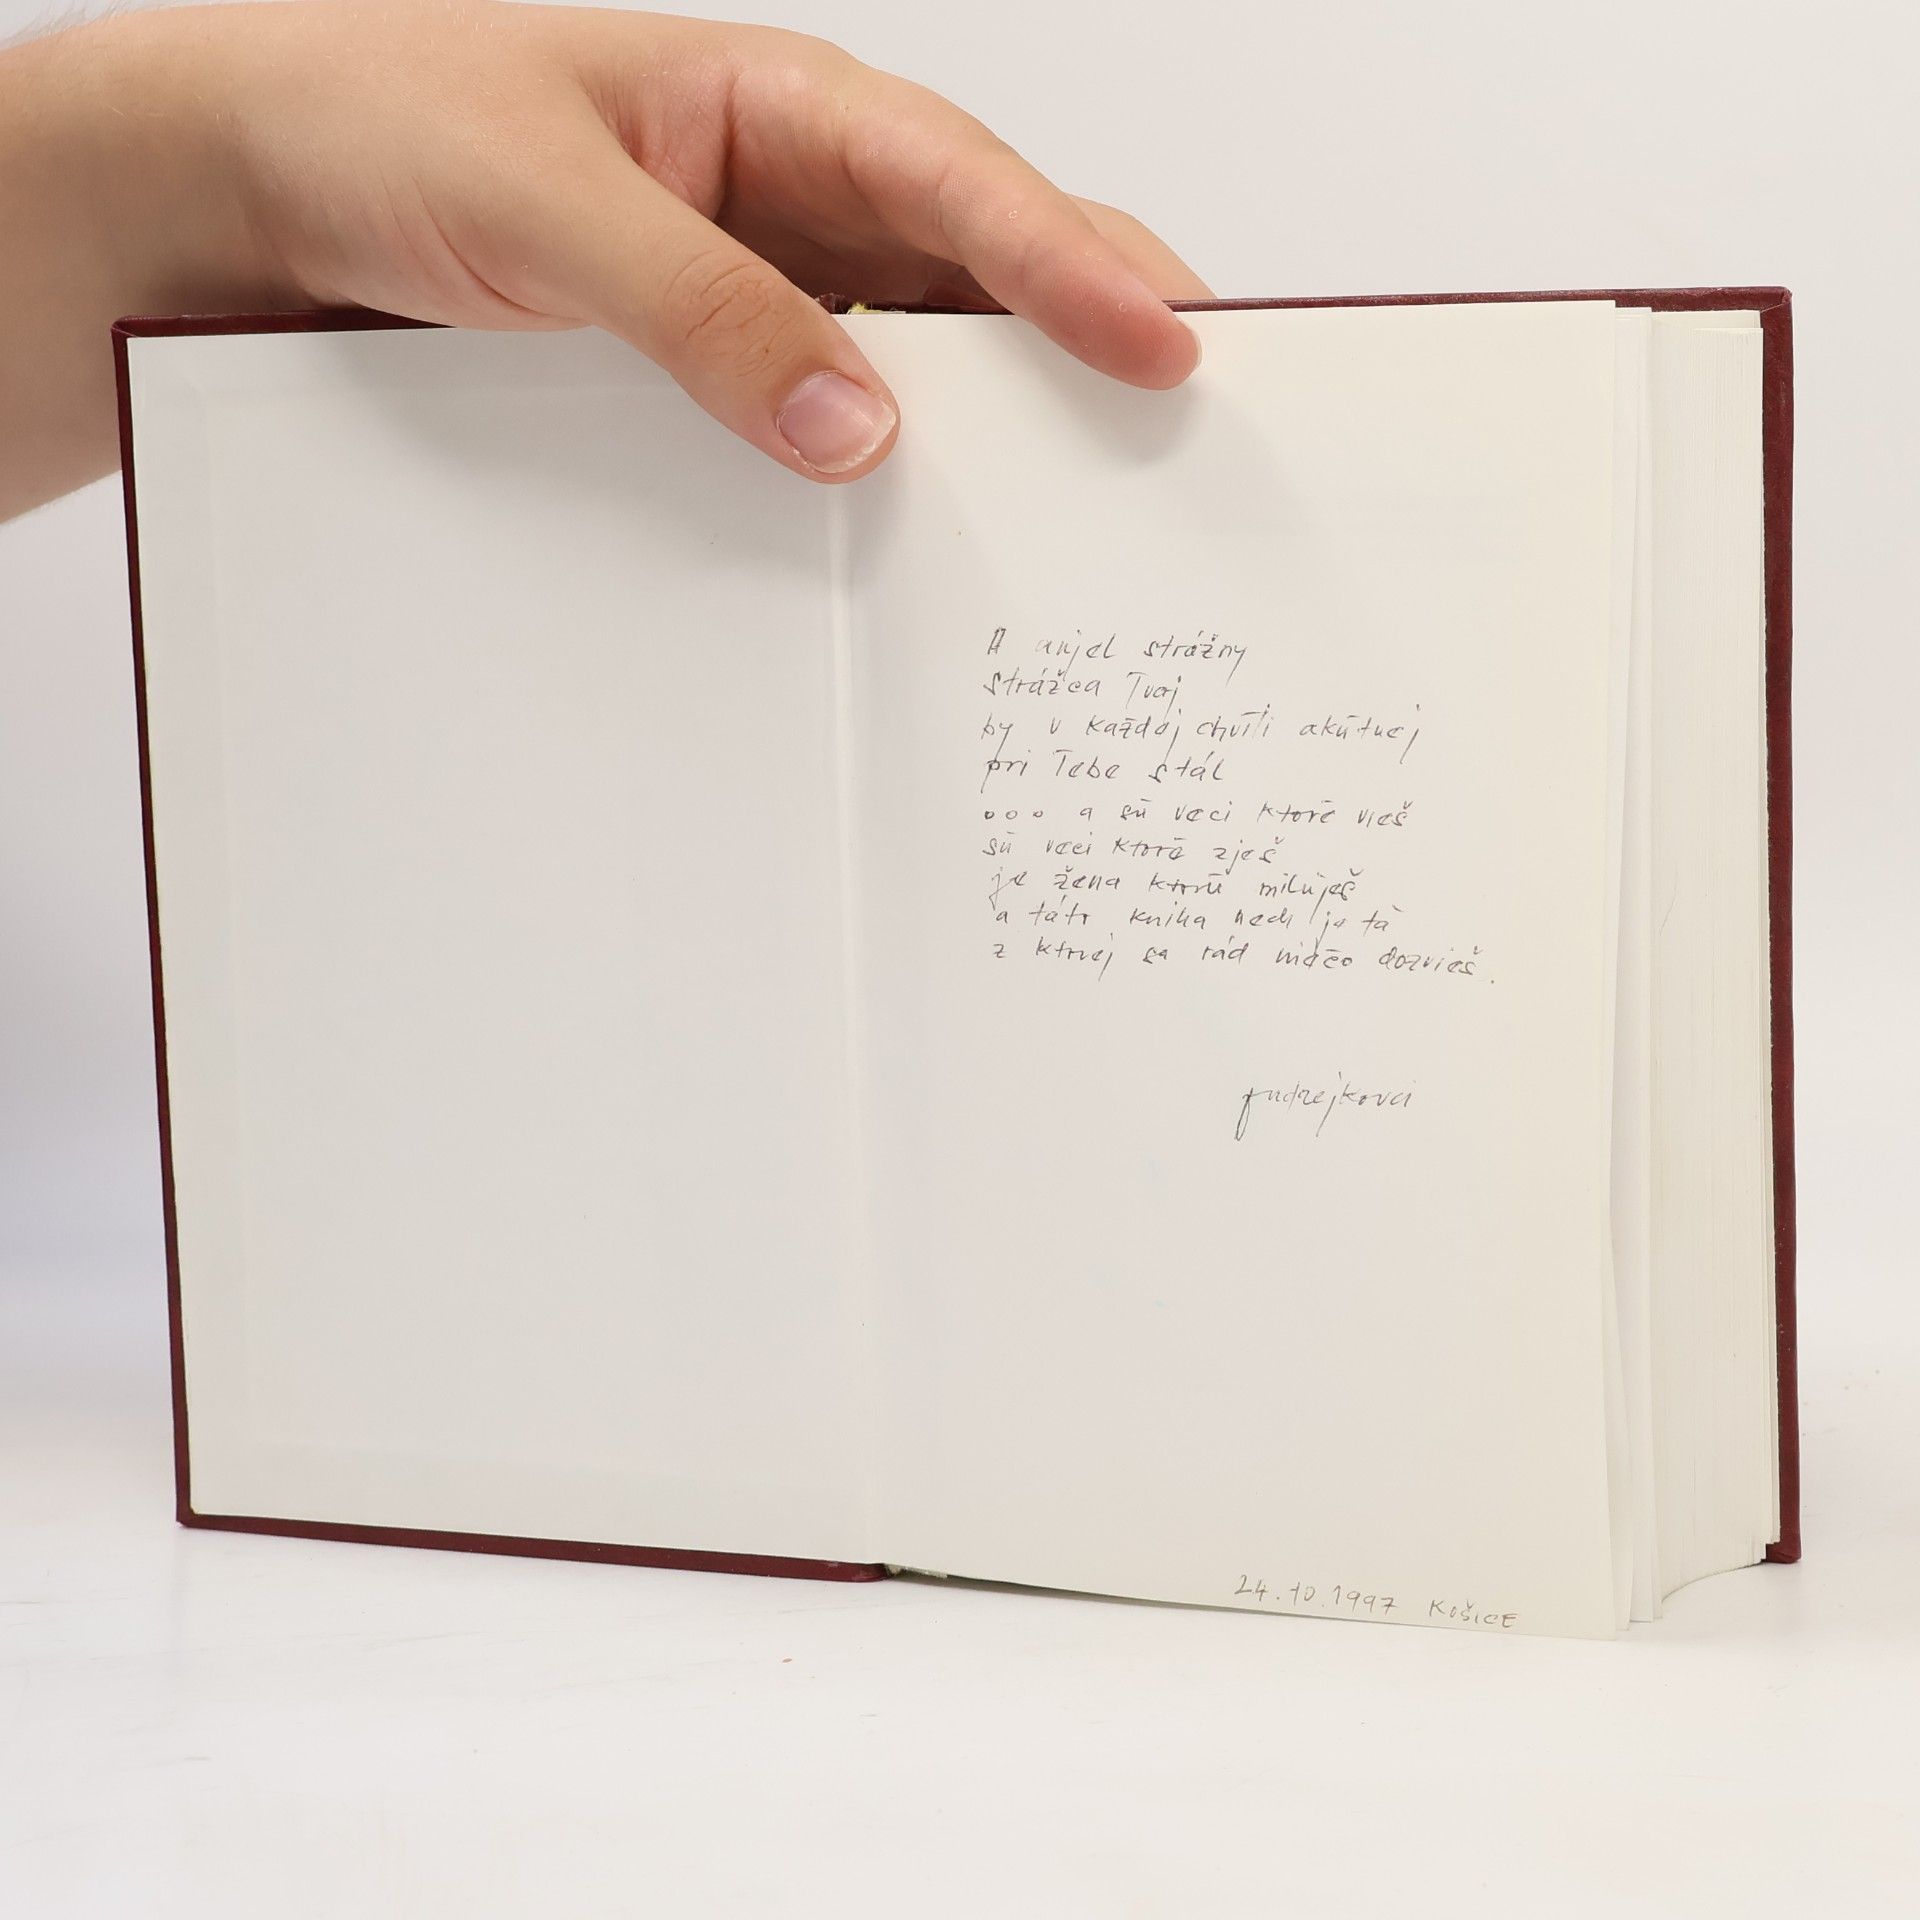 A anjel strážny
strážca Tvoj
by v každej chvíli akútnej
pri Tebe stál
... a sú veci ktoré vieš
sú veci ktoré zješ
je žena ktorú miluješ
a táto kniha nech je tá
z ktorej sa rád niečo dozvieš.
Andrejkovci
24.10.1997 KOŠICE